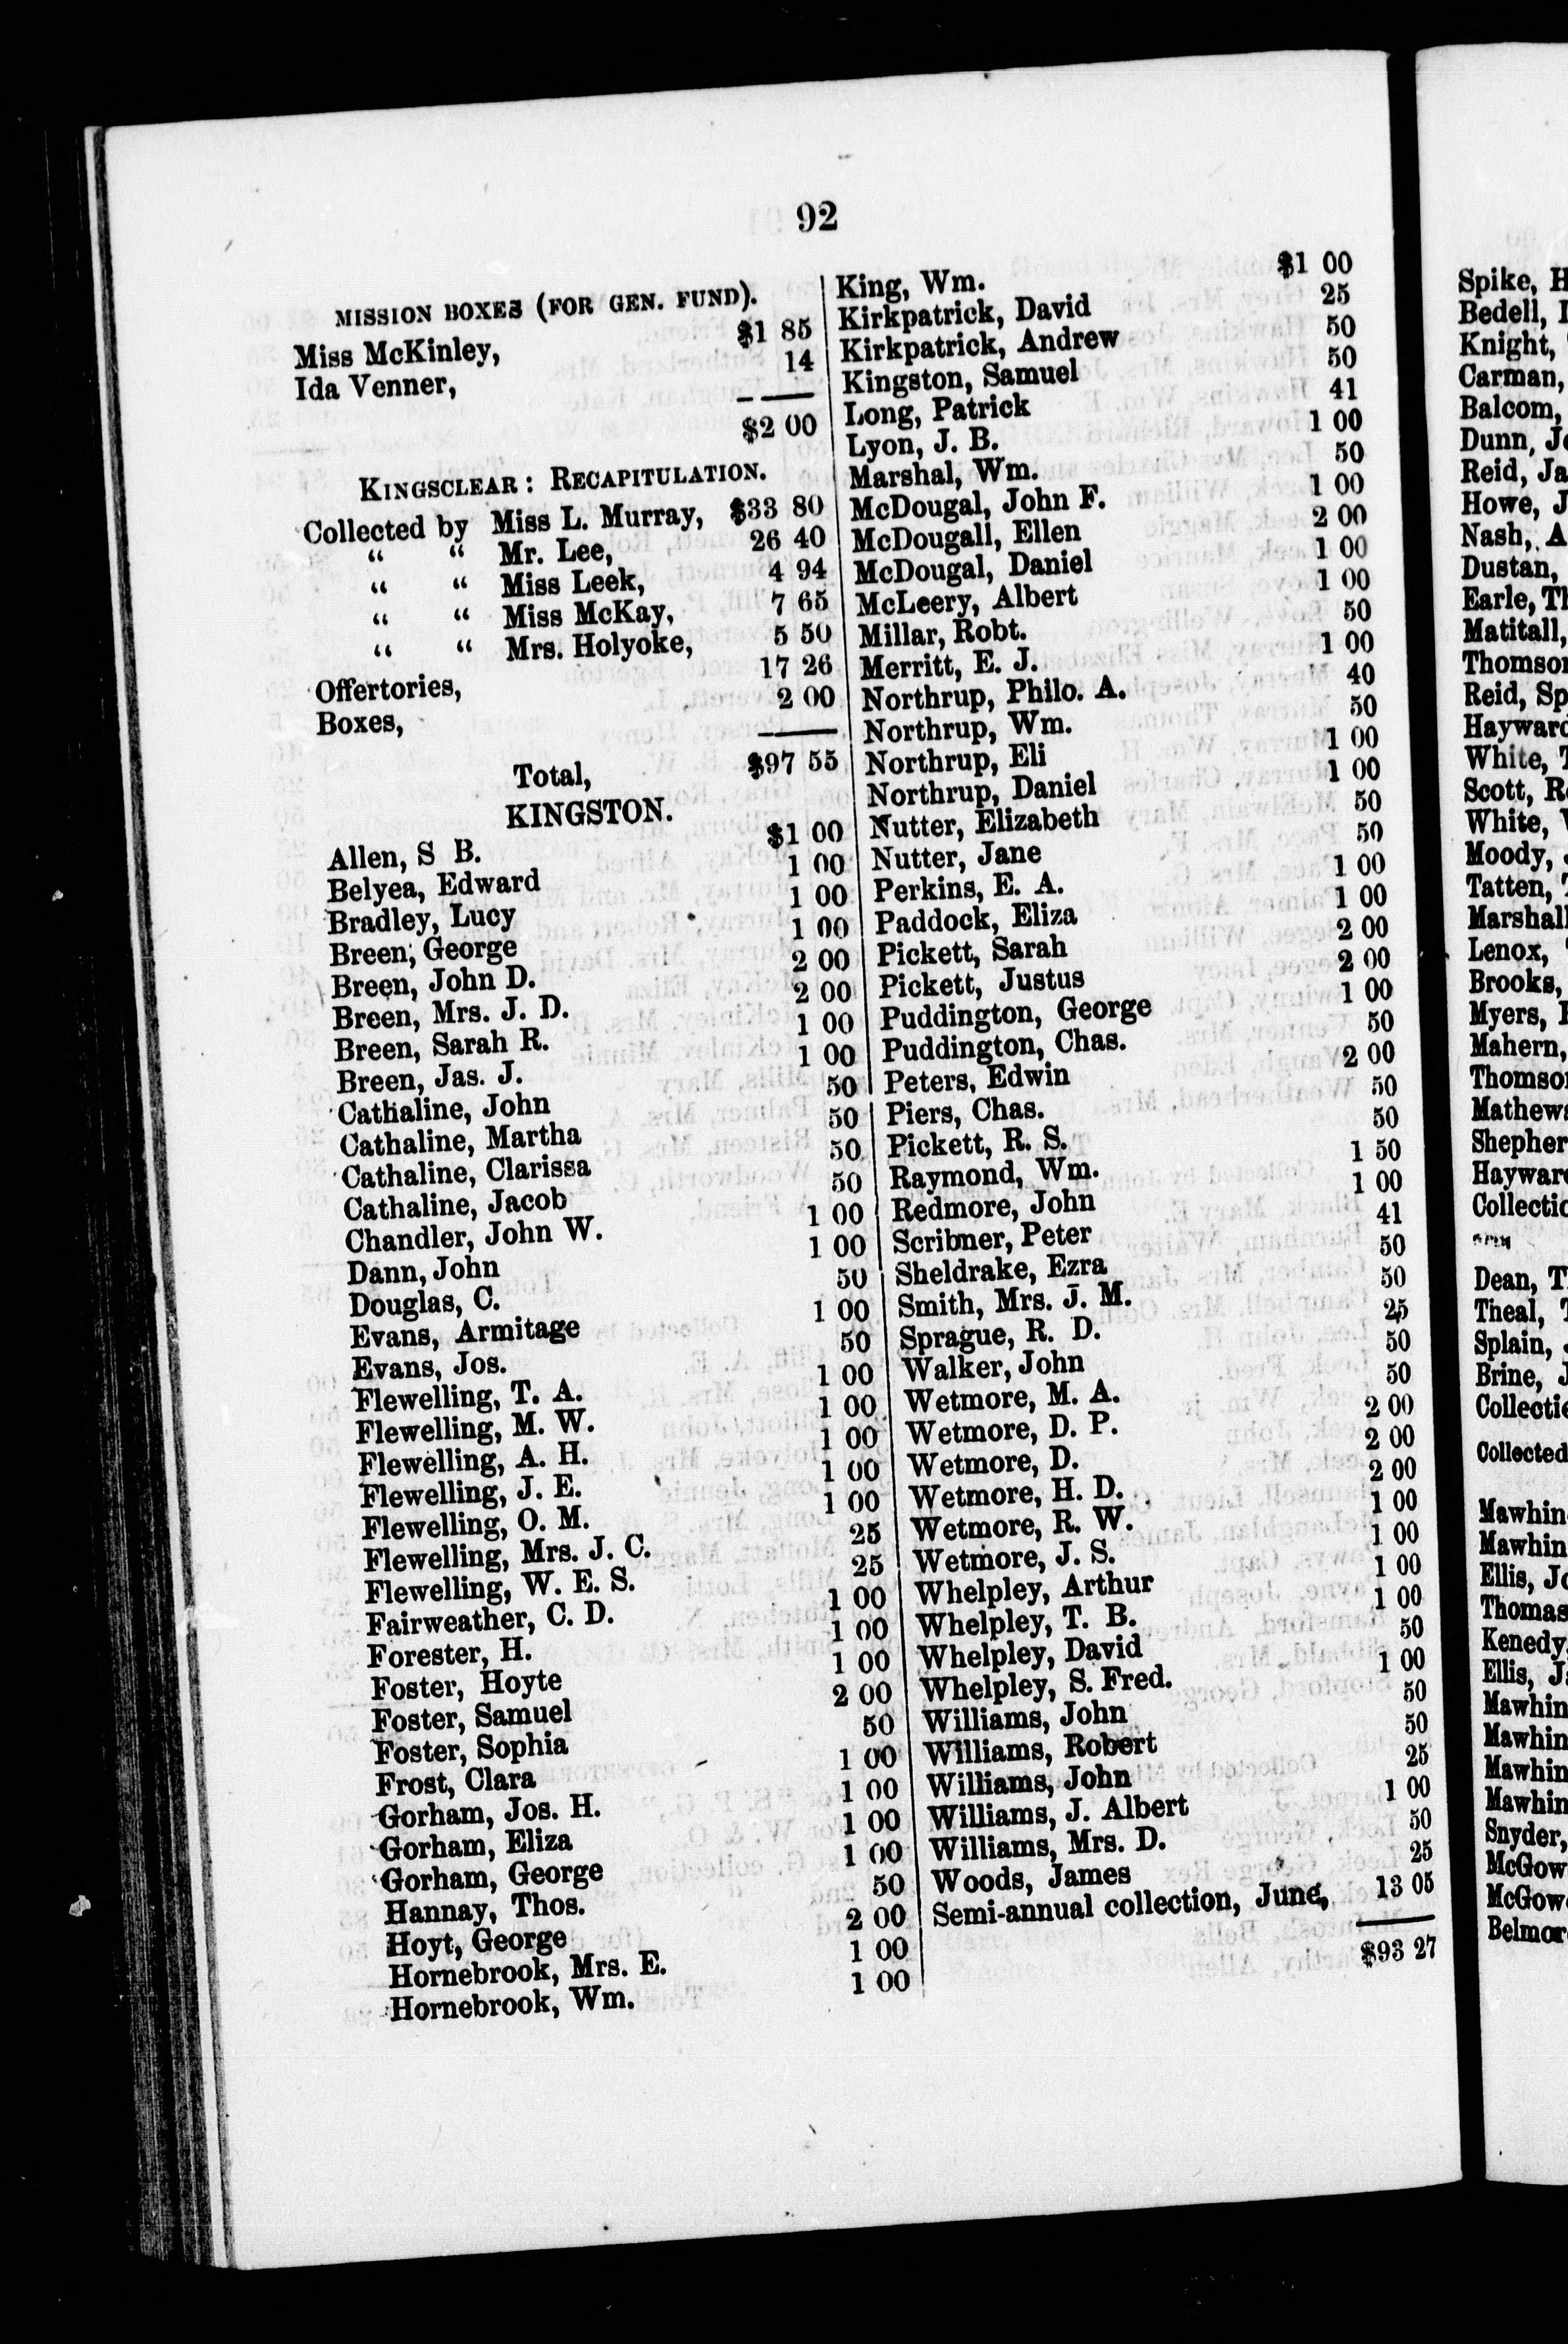 92
MISSION BOXES (FOR GEN. FUND).
Miss McKinley, $1 85
Ida Venner, 14
$2 00
KINGSCLEAR: RECAPITULATION.
Collected by Miss L. Murray, $33 80
“ “ Mr. Lee, 26 40
“ “ Miss Leek, 4 94
“ “ Miss McKay, 7 65
“ “ Mrs. Holyoke, 5 50
Offertories, 17 26
Boxes, 2 00
Total, $97 55
KINGSTON.
Allen, S B. $1 00
Belyea, Edward 1 00
Bradley, Lucy 1 00
Breen, George 1 00
Breen, John D. 2 00
Breen, Mrs. J. D. 2 00
Breen, Sarah R. 1 00
Breen, Jas. J. 1 00
Cathaline, John 50
Cathaline, Martha 50
Cathaline, Clarissa 50
Cathaline, Jacob 50
Chandler, John W. 1 00
Dann, John 1 00
Douglas, C. 50
Evans, Armitage 1 00
Evans, Jos. 50
Flewelling, T. A. 1 00
Flewelling, M. W. 1 00
Flewelling, A. H. 1 00
Flewelling, J. E. 1 00
Flewelling, O. M. 1 00
Flewelling, Mrs. J. C. 25
Flewelling, W. E. S. 25
Fairweather, C. D. 1 00
Forester, H. 1 00
Foster, Hoyte 1 00
Foster, Samuel 2 00
Foster, Sophia 50
Frost, Clara 1 00
Gorham, Jos. H. 1 00
Gorham, Eliza 1 00
Gorham, George 1 00
Hannay, Thos. 50
Hoyt, George 2 00
Hornebrook, Mrs. E. 1 00
Hornebrook, Wm. 1 00
King, Wm. $1 00
Kirkpatrick, David 25
Kirkpatrick, Andrew 50
Kingston, Samuel 50
Long, Patrick 41
Lyon, J. B. 1 00
Marshal, Wm. 50
McDougal, John F. 1 00
McDougall, Ellen 2 00
McDougal, Daniel 1 00
McLeery, Albert 1 00
Millar, Robt. 50
Merritt, E. J. 1 00
Northrup, Philo. A. 40
Northrup, Wm. 50
Northrup, Eli 1 00
Northrup, Daniel 1 00
Nutter, Elizabeth 50
Nutter, Jane 50
Perkins, E. A. 1 00
Paddock, Eliza 1 00
Pickett, Sarah 2 00
Pickett, Justus 2 00
Puddington, George 1 00
Puddington, Chas. 50
Peters, Edwin 2 00
Piers, Chas. 50
Pickett, R. S. 50
Raymond, Wm. 1 50
Redmore, John 1 00
Scribner, Peter 41
Sheldrake, Ezra 50
Smith, Mrs. J. M. 50
Sprague, R. D. 25
Walker, John 50
Wetmore, M. A. 50
Wetmore, D. P. 2 00
Wetmore, D. 2 00
Wetmore, H. D. 2 00
Wetmore, R. W. 1 00
Wetmore, J. S. 1 00
Whelpley, Arthur 1 00
Whelpley, T. B. 1 00
Whelpley, David 50
Whelpley, S. Fred. 1 00
Williams, John 50
Williams, Robert 50
Williams, John 25
Williams, J. Albert 1 00
Williams, Mrs. D. 50
Woods, James 25
Semi-annual collection, June, 13 05
$93 27
Spike, H
Bedell,
Knight,
Carman,
Balcom,
Dunn, Jo
Reid, Ja
Howe, J
Nash, A
Dustan,
Earle, Th
Matitall,
Thomson
Reid, Sp
Hayward
White, T
Scott, R
White,
Moody,
Tatten,
Marshall
Lenox,
Brooks,
Myers,
Mahern,
Thomson
Mathews
Shepher
Hayward
Collectio
Dean, T
Theal,
Splain,
Brine, J
Collectio
Collected
Mawhin
Mawhin
Ellis, Jo
Thomas
Kenedy,
Ellis, J
Mawhin
Mawhin
Mawhin
Mawhin
Snyder,
McGow
McGow
Belmor